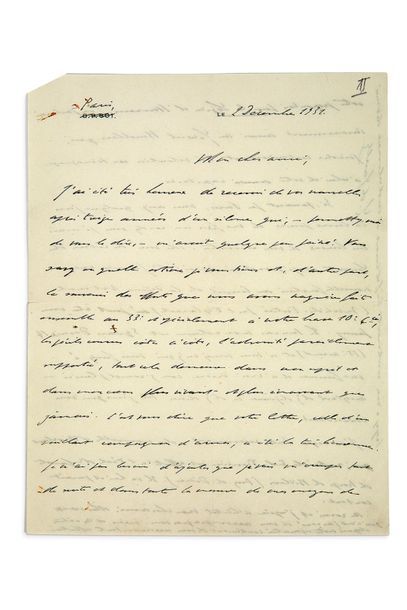 II
Paris,
RABAT. LE 2 Décembre 1931.
Mon cher ami,
J'ai été très heureux de recevoir de vos nouvelles
après treize années d'un silence qui, — permettez-moi
de vous le dire, — m'avait quelque peu peiné! Vous
savez en quelle estime je vous tiens et, d'autre part,
le souvenir des efforts que nous avons naguère fait
ensemble au 33e spécialement à notre 10e Cie,
les périls courus côte à côte, l'adversité
supportée, tout cela demeure dans mon esprit et
dans mon cœur plus vivant et plus émouvant que
jamais. C'est vous dire que votre lettre, celle d'un
vaillant compagnon d'armes, a été la très bienvenue.
Je n'ai pas besoin d'ajouter que je vais m'occuper tout
de suite et dans toute la mesure de mes moyens de